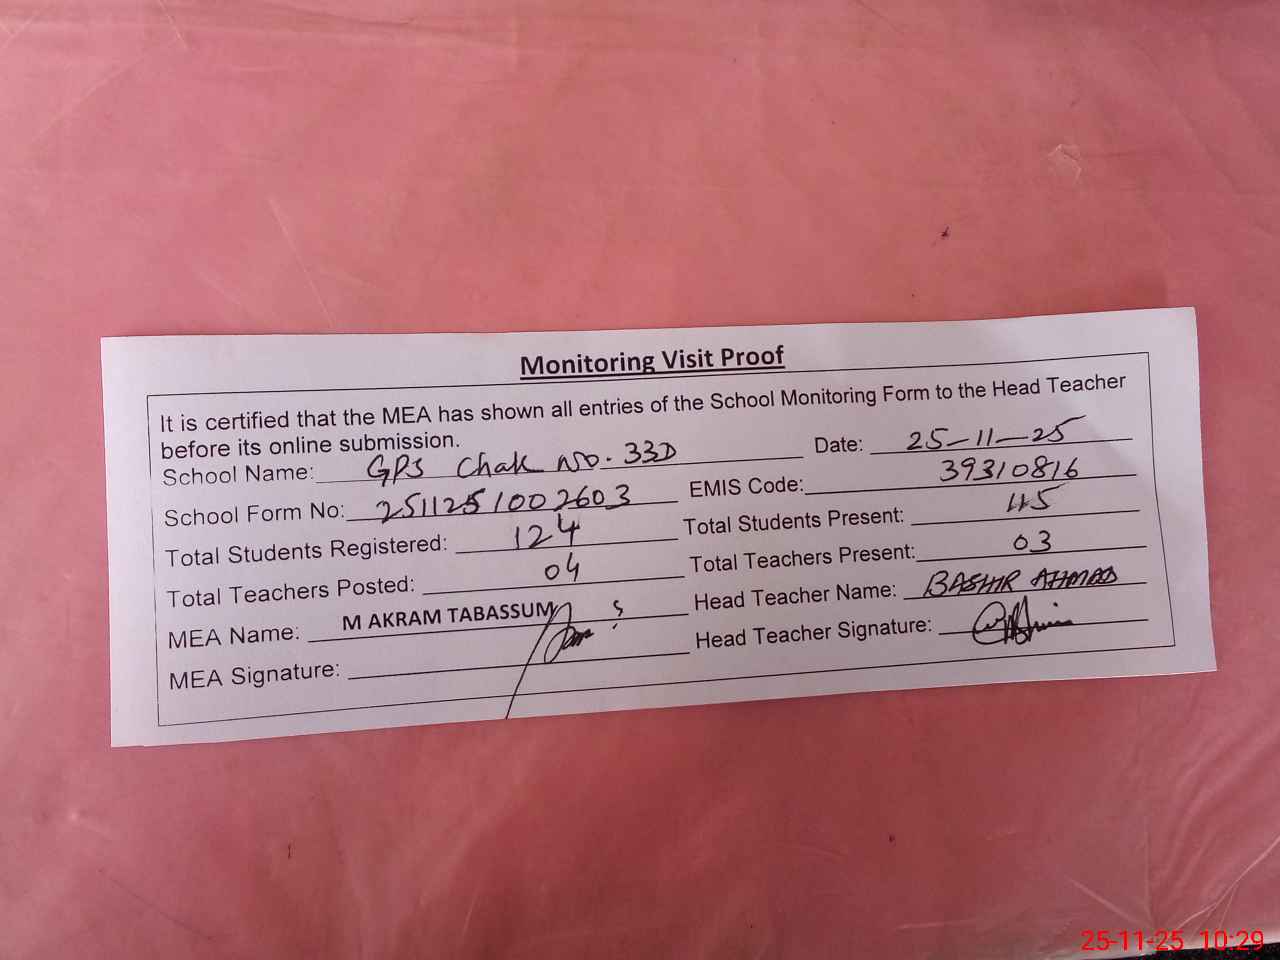 Monitoring Visit Proof
It is certified that the MEA has shown all entries of the School Monitoring Form to the Head Teacher
before its online submission.
School Name: GPS Chak No. 33D Date: 25-11-25
School Form No: 2511251002603 EMIS Code: 39310816
Total Students Registered: 124 Total Students Present: 45
Total Teachers Posted: 04 Total Teachers Present: 03
MEA Name: M AKRAM TABASSUM Head Teacher Name: BASHIR AHMAD
MEA Signature: Head Teacher Signature:
25-11-25 10:29